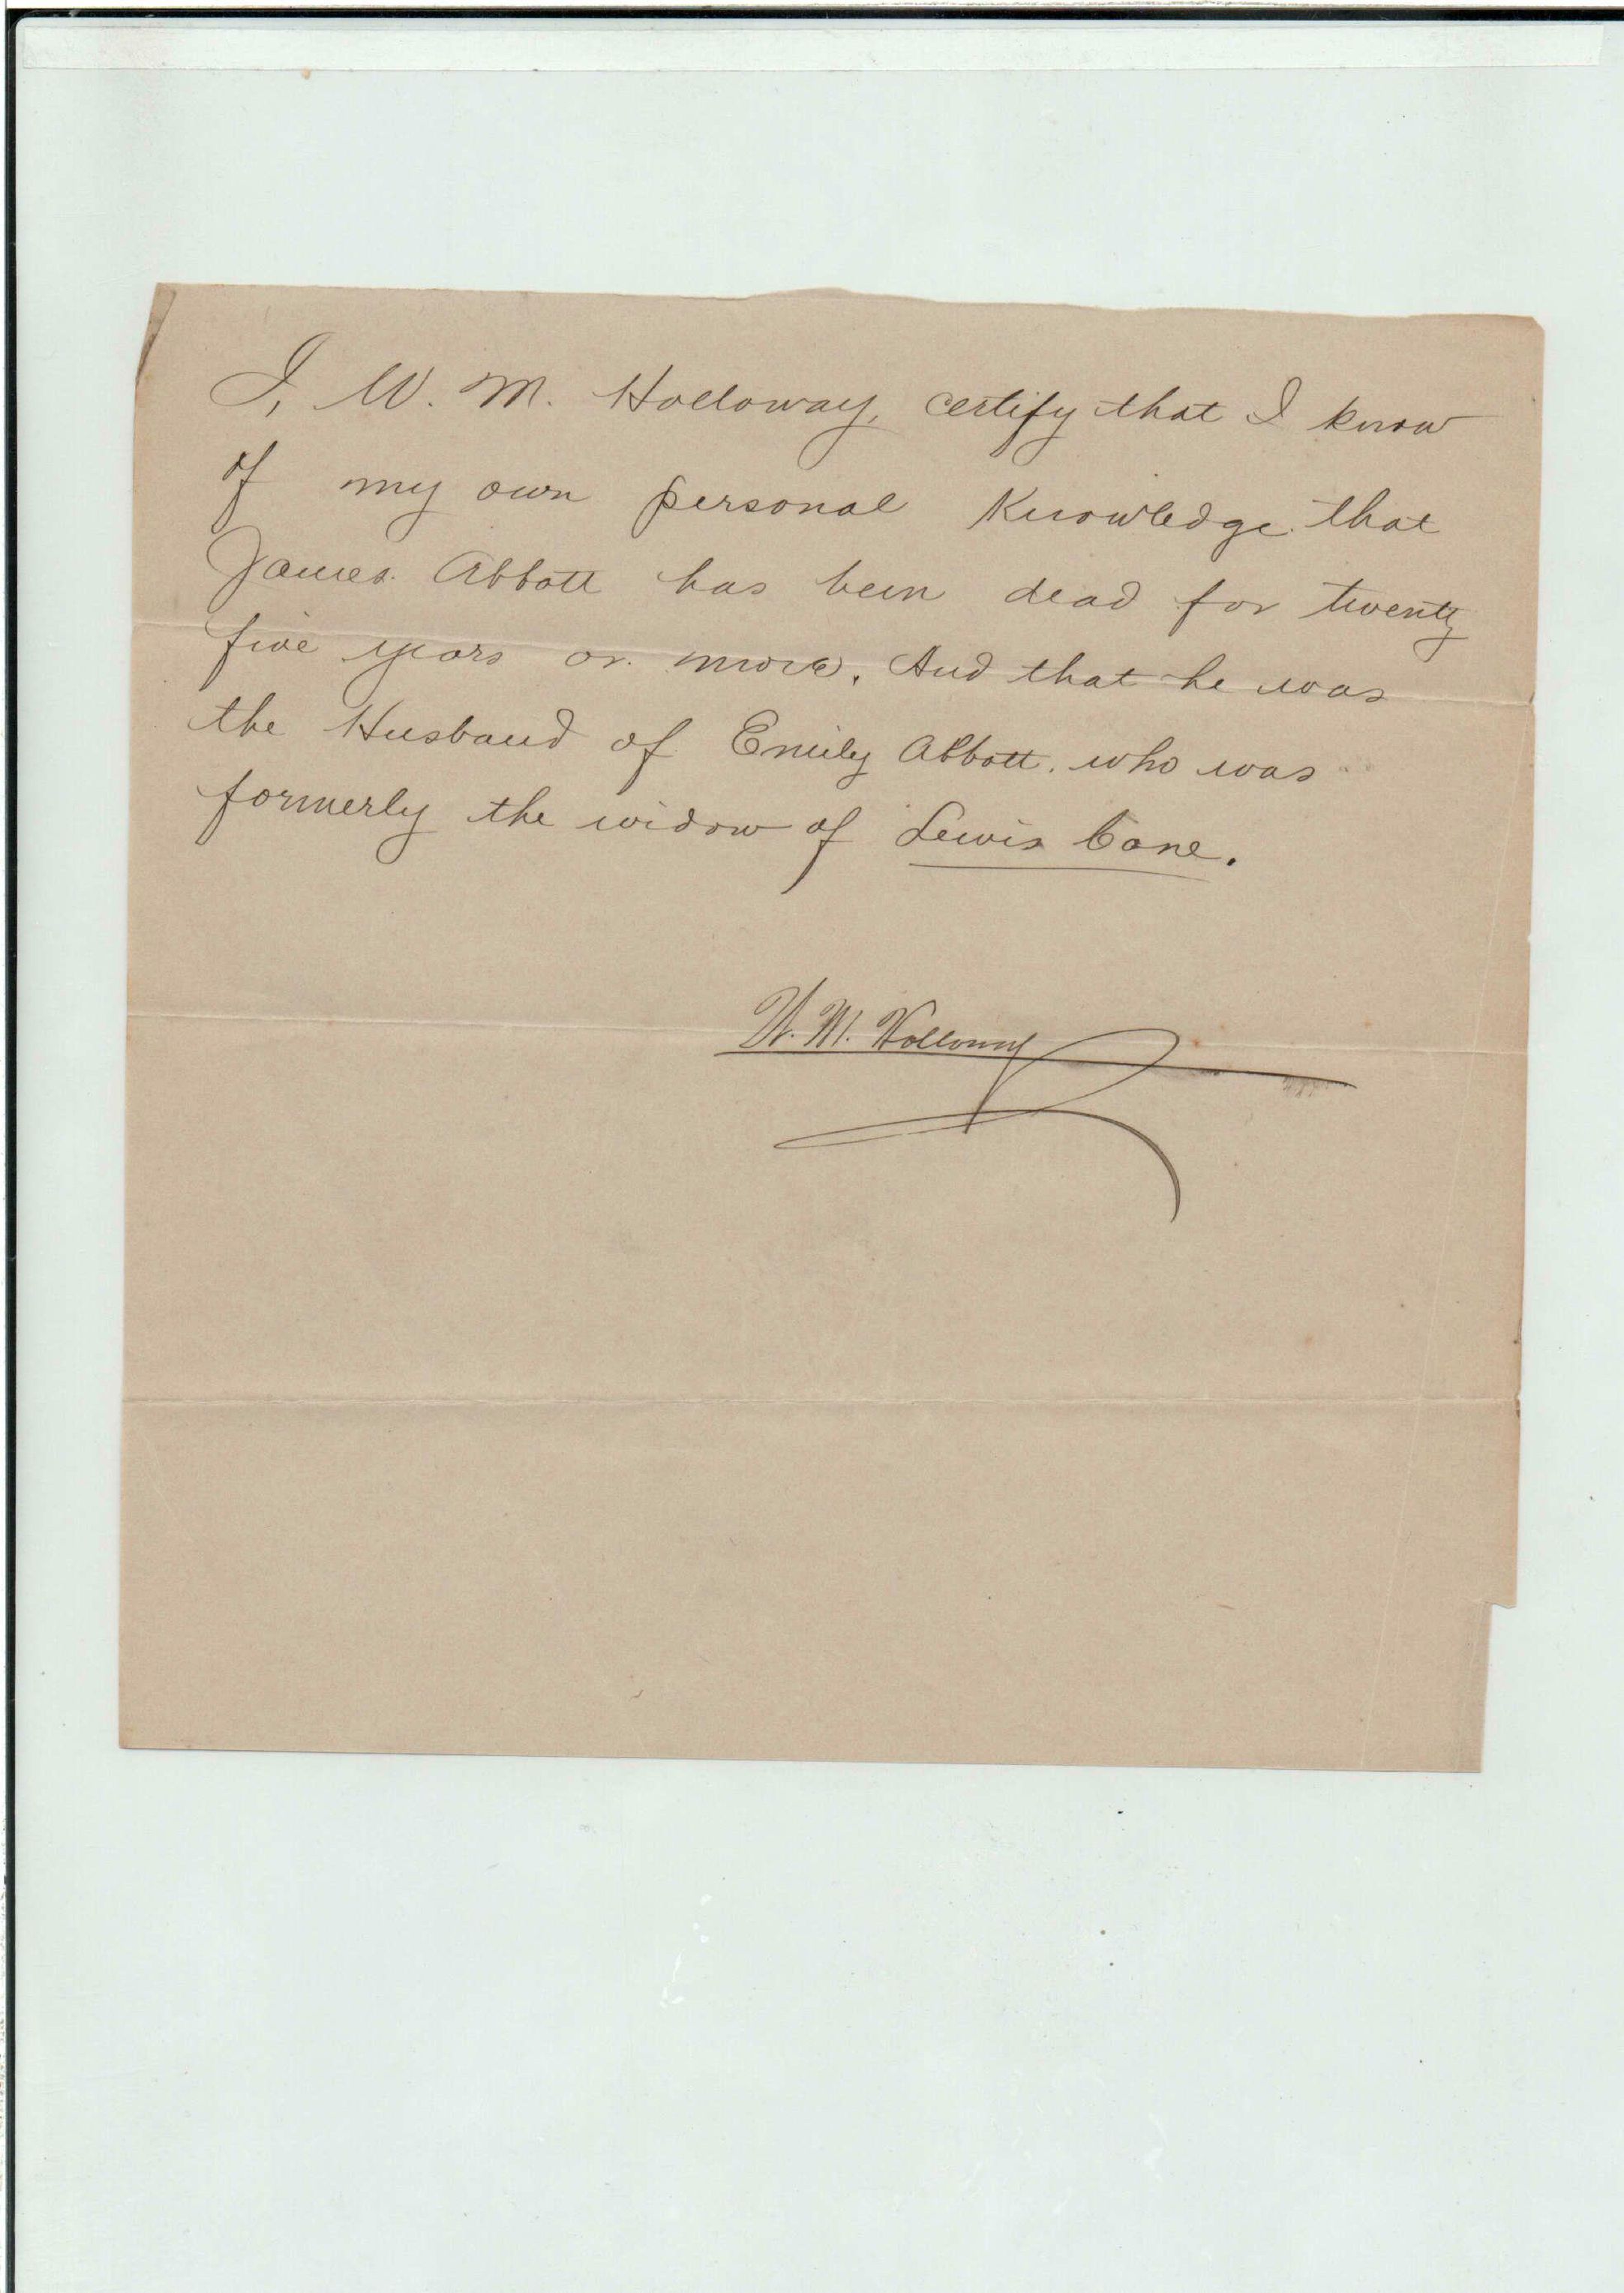 I, W. M. Holloway, certify that I know
of my own personal Knowledge that
James Abbott has been dead for twenty
five years or more. And that he was
the Husband of Emily Abbott. who was
formerly the widow of Lewis Cone.
W. M. Holloway